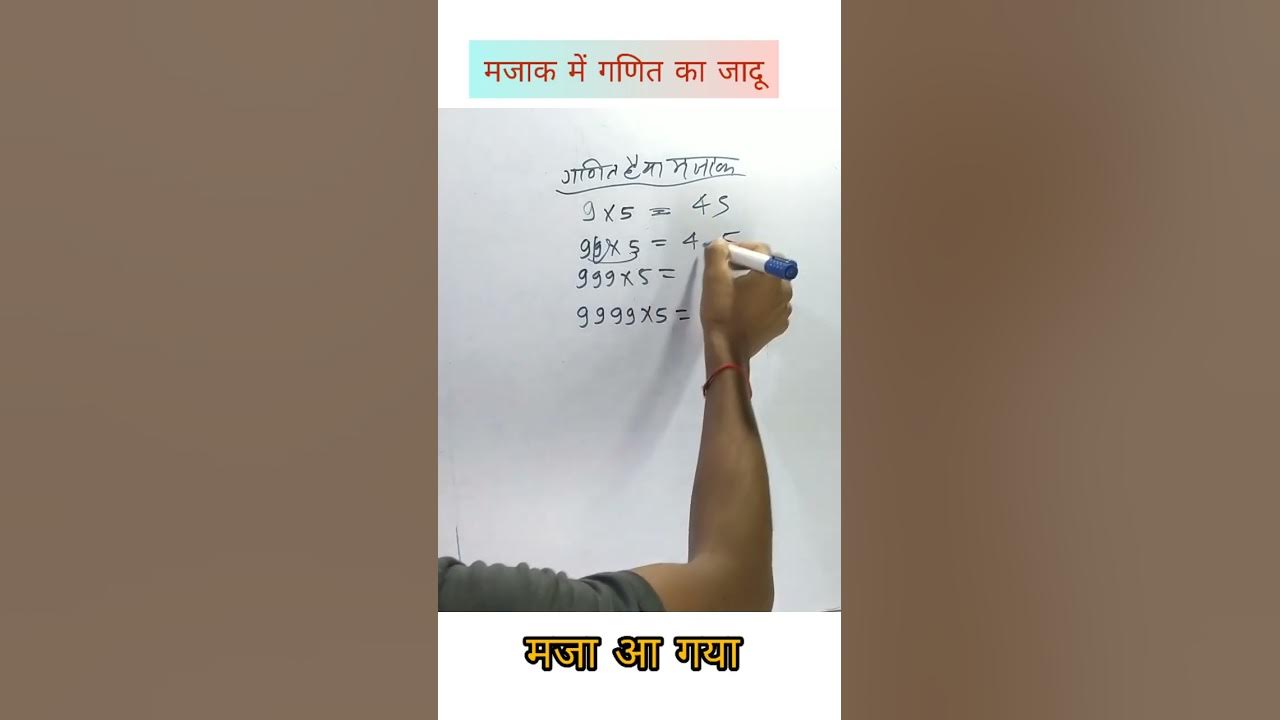 मजाक में गणित का जादू
गणित है या मजाक
9 x 5 = 45
99 x 5 = 4 5
999 x 5 =
9999 x 5 =
मजा आ गया